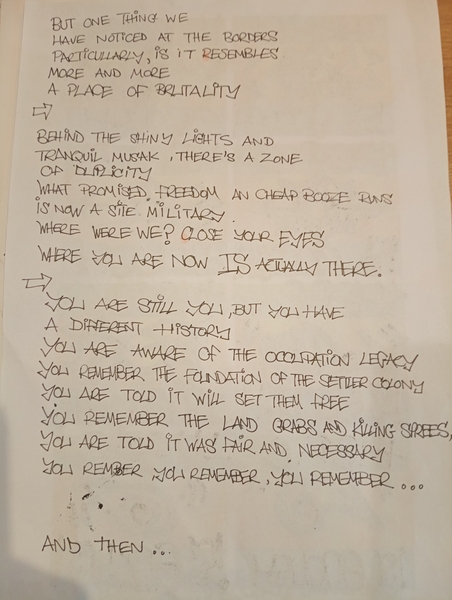 BUT ONE THING WE
HAVE NOTICED AT THE BORDERS
PARTICULLARLY, IS IT RESEMBLES
MORE AND MORE
A PLACE OF BRUTALITY
⇨
BEHIND THE SHINY LIGHTS AND
TRANQUIL MUSAK, THERE'S A ZONE
OF DUPLICITY
WHAT PROMISED FREEDOM AN CHEAP BOOZE RUNS
IS NOW A SITE MILITARY.
WHERE WERE WE? CLOSE YOUR EYES
WHERE YOU ARE NOW IS ACTUALLY THERE.
⇨
YOU ARE STILL YOU, BUT YOU HAVE
A DIFFERENT HISTORY
YOU ARE AWARE OF THE OCCUPATION LEGACY
YOU REMEMBER THE FOUNDATION OF THE SETTLER COLONY
YOU ARE TOLD IT WILL SET THEM FREE
YOU REMEMBER THE LAND GRABS AND KILLING SPREES,
YOU ARE TOLD IT WAS FAIR AND NECESSARY
YOU REMBER YOU REMEMBER, YOU REMEMBER ...
AND THEN ...